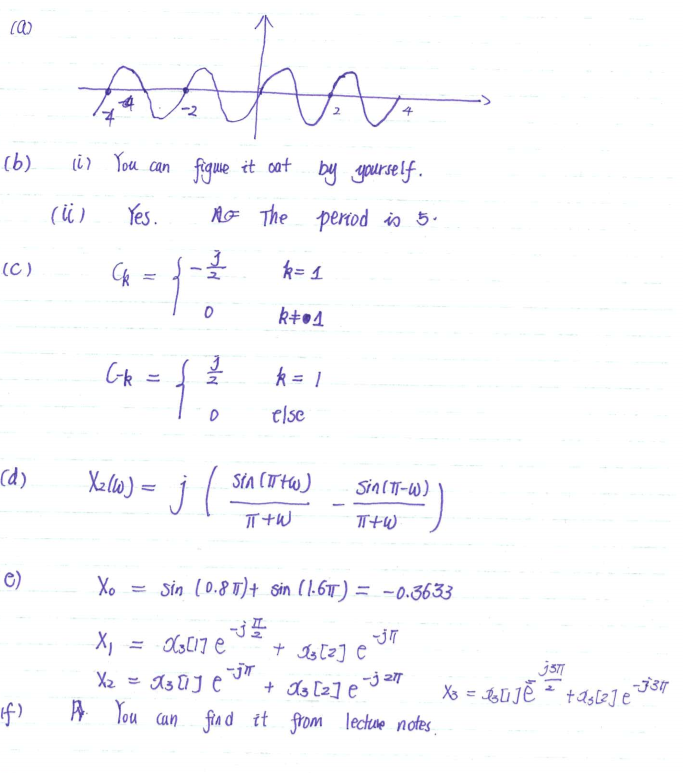 (a)
-4 -2 2 4
(b) (i) You can figure it out by yourself.
(ii) Yes. The period is 5.
(c) Ck = { -j/2 k = 1
0 k ≠ 1
C-k = { j/2 k = 1
0 else
(d) X2(ω) = j ( sin(π+ω)/(π+ω) - sin(π-ω)/(π+ω) )
e) X0 = sin (0.8π) + sin (1.6π) = -0.3633
X1 = x3[1] e^{-jπ/2} + x3[2] e^{-jπ}
X2 = x3[1] e^{-jπ} + x3[2] e^{-j2π} X3 = x3[1] e^{-j3π/2} + x3[2] e^{-j3π}
(f) You can find it from lecture notes.